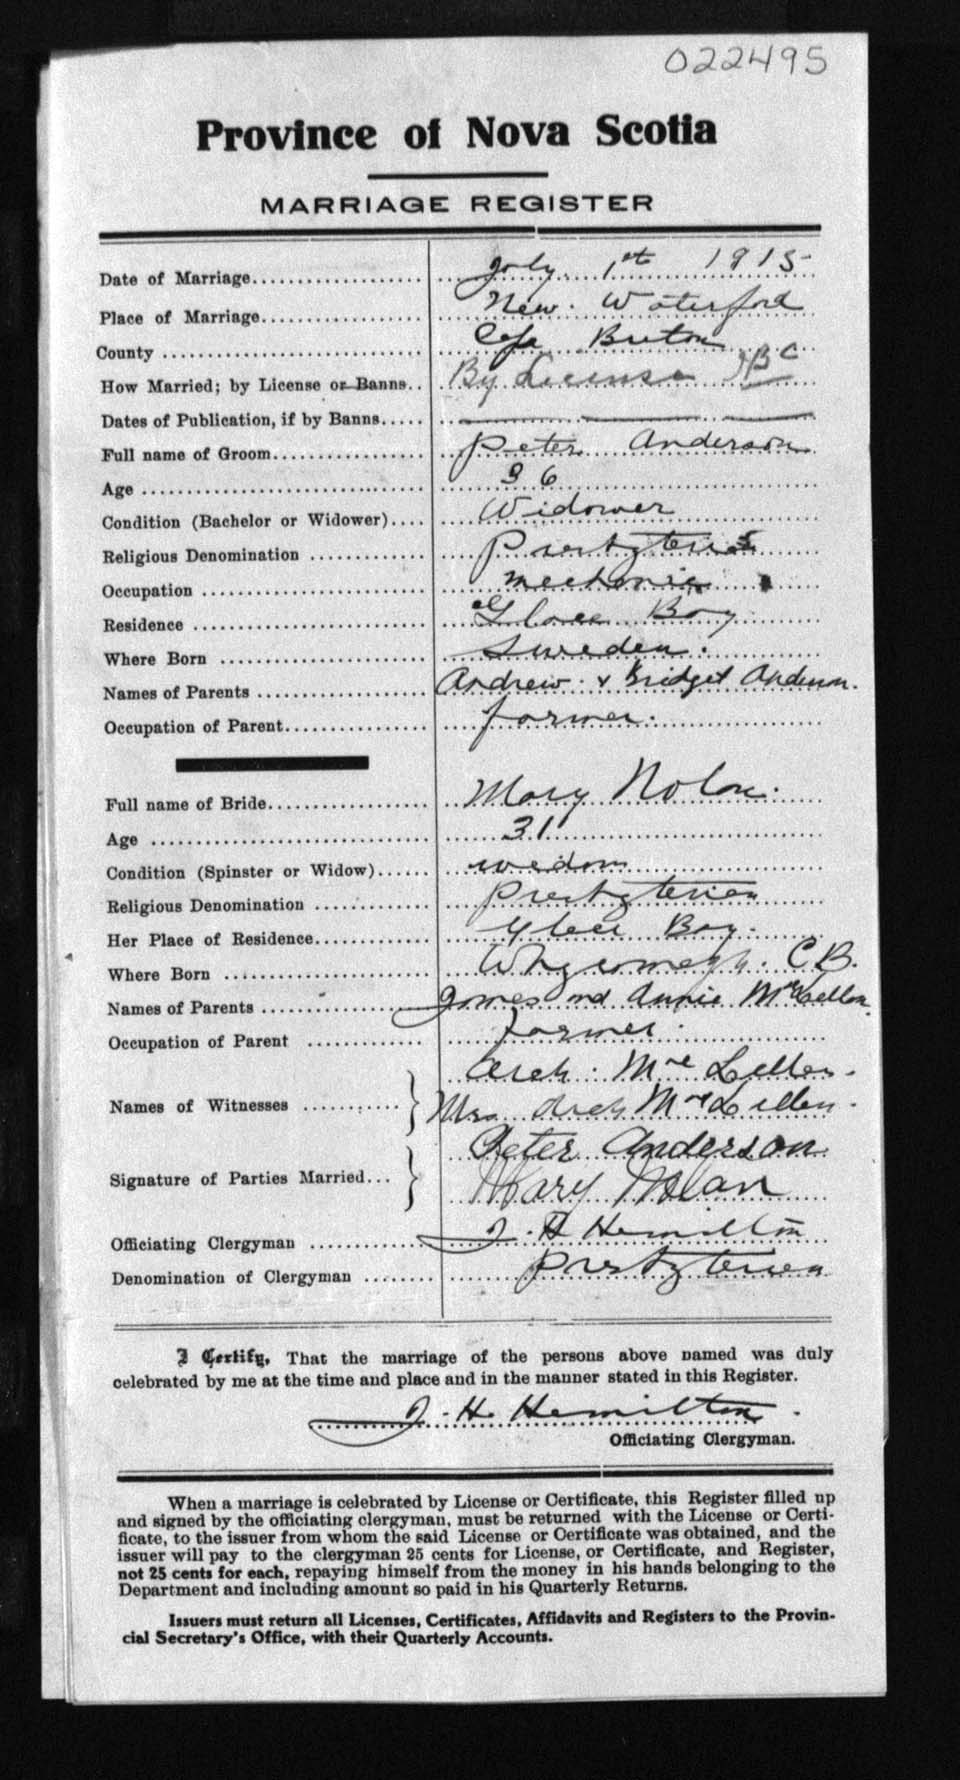 022495
Province of Nova Scotia
MARRIAGE REGISTER
Date of Marriage.................... July 1st 1915
Place of Marriage................... New Waterford
County ............................. Cape Breton
How Married; by License or Banns.. By License
Dates of Publication, if by Banns.....
Full name of Groom.................. Peter Anderson
Age ................................ 36
Condition (Bachelor or Widower).... Widower
Religious Denomination ............. Presbyterian
Occupation ......................... mechanic
Residence .......................... Glace Bay
Where Born ......................... Sweden.
Names of Parents ................... Andrew & Bridget Anderson.
Occupation of Parent................ farmer.
Full name of Bride.................. Mary Nolan.
Age ................................ 31
Condition (Spinster or Widow)...... widow
Religious Denomination ............. Presbyterian
Her Place of Residence.............. Glace Bay.
Where Born ......................... C B.
Names of Parents ................... James and Annie McLellan.
Occupation of Parent ............... farmer.
Arch. McLellan.
Names of Witnesses ............ Mrs Arch McLellan.
Peter Anderson
Signature of Parties Married... Mary Nolan
Officiating Clergyman .............. J. H Hamilton
Denomination of Clergyman ........ Presbyterian
I Certify, That the marriage of the persons above named was duly
celebrated by me at the time and place and in the manner stated in this Register.
J. H. Hamilton.
Officiating Clergyman.
When a marriage is celebrated by License or Certificate, this Register filled up
and signed by the officiating clergyman, must be returned with the License or Certi-
ficate, to the issuer from whom the said License or Certificate was obtained, and the
issuer will pay to the clergyman 25 cents for License, or Certificate, and Register,
not 25 cents for each, repaying himself from the money in his hands belonging to the
Department and including amount so paid in his Quarterly Returns.
Issuers must return all Licenses, Certificates, Affidavits and Registers to the Provin-
cial Secretary's Office, with their Quarterly Accounts.